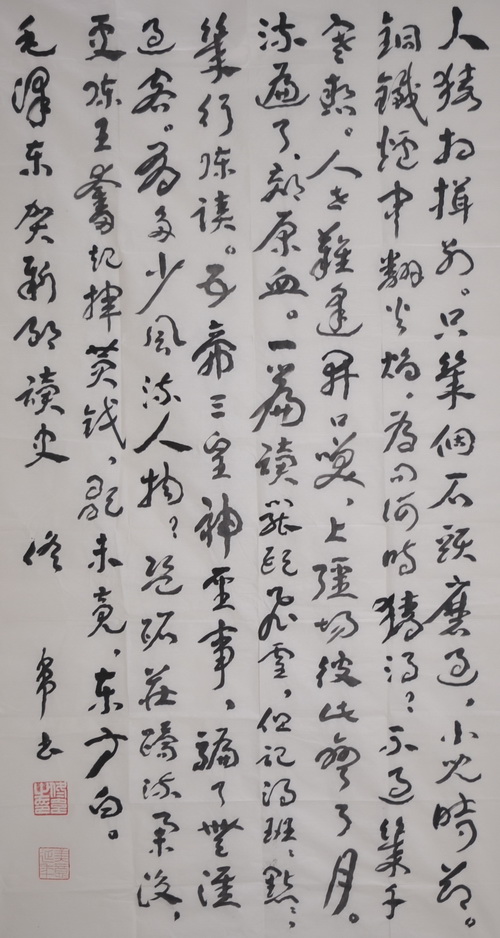 人猿相揖别。只幾個石頭磨過，小兒時節。
銅鐵爐中翻火焰，為问何時猜得？不過幾千
寒熱。人世難逢開口笑，上疆場彼此彎弓月。
流遍了，郊原血。一篇讀罷頭飛雪，但記得班班點點，
幾行陳跡。五帝三皇神聖事，騙了無涯
過客。有多少風流人物？盗跖莊蹻流譽後，
更陳王奮起揮黄鉞，歌未竟，東方白。
毛澤东賀新郎讀史 修 书